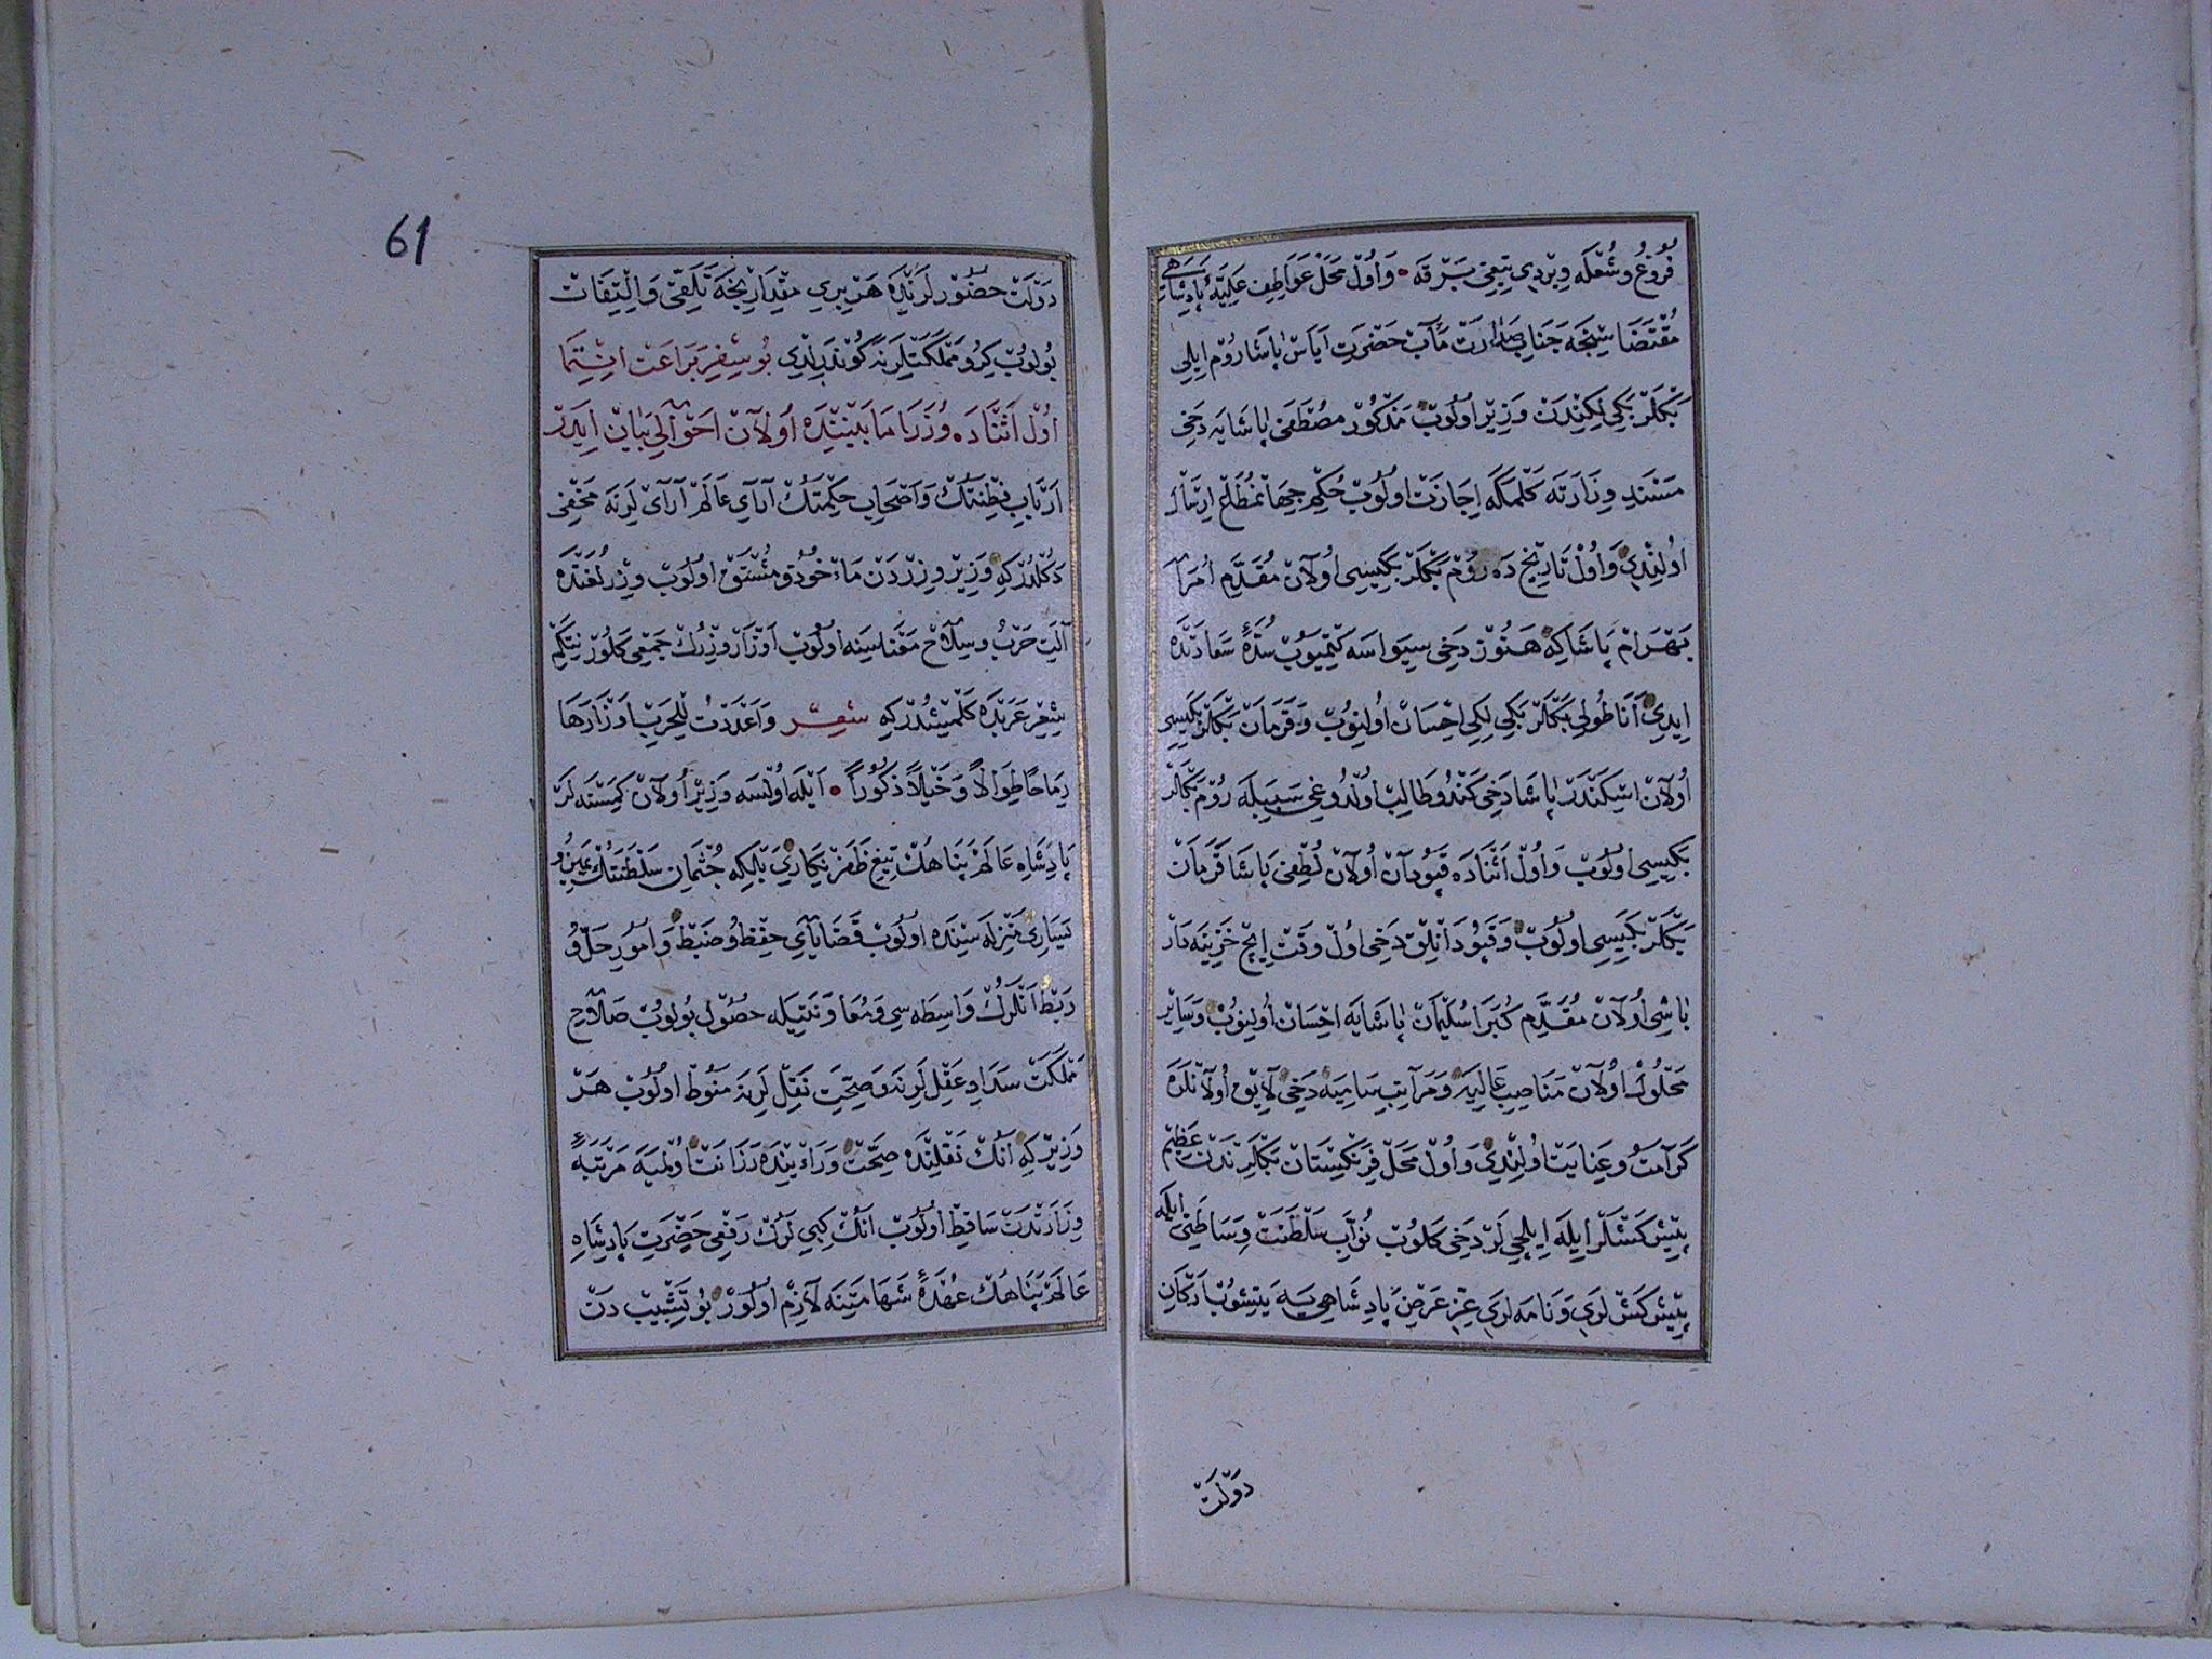 فُرُوغُ وشُعْلَه وِيرْدِي تِيغِي بَرْقَه • وَاُولْ مَحَلْ عَوَاطِفِ عَلِيَّهٔ پَادِشَاهِي
مُقْتَضَاسِنْجَه جَنَابِ صَدَارَتْ مَآبْ حَضْرَتِ اَيَاسْ پَاشَا رُومْ اِيلِي
بَكْلَرْ بَكِي لِكِنْدَنْ وَزِيرْ اُولُوبْ مَذْكُورْ مُصْطَفَى پَاشَايَه دَخِي
مَسْنَدِ وِزَارَتَه كَلْمَكَه اِجَازَتْ اُولُوبْ حُكْمِ جِهَانْمُطَاعْ اِرْسَالْ
اُولِنْدِي وَاُولْ تَارِيخْ دَه رُومْ بَكْلَرْ بَكِيسِي اُولَانْ مُقَدَّمِ اُمَرَا
بَهْرَامْ پَاشَاكِه هَنُوزْ دَخِي سِيوَاسَه كِتْمَيُوبْ سُدَّهٔ سَعَادَتْدَه
اِيدِي اَنَاطُولِي بَكْلَرْ بَكِي لِكِي اِحْسَانْ اُولِنُوبْ وَقَرَمَانْ بَكْلَرْ بَكِيسِي
اُولَانْ اِسْكَنْدَرْ پَاشَا دَخِي كَنْدُو طَالِبْ اُولْدُوغِي سَبَبِيلَه رُومْ بَكْلَرْ
بَكِيسِي اُولُوبْ وَاُولْ اَثْنَادَه قَپُودَانْ اُولَانْ لُطْفِي پَاشَا قَرَمَانْ
بَكْلَرْ بَكِيسِي اُولُوبْ وَقَپُودَانْلِقْ دَخِي اُولْ وَقْتْ اِيچْ خَزِينَه دَارْ
بَاشِي اُولَانْ مُقَدَّمِ كُبَرَا سُلَيْمَانْ پَاشَايَه اِحْسَانْ اُولِنُوبْ وَسَائِرْ
مَحْلُولْ اُولَانْ مَنَاصِبِ عَالِيَه وَمَرَاتِبِ سَامِيَه دَخِي لَايِقْ اُولَانْلَرَه
كَرَامَتْ وعِنَايَتْ اُولِنْدِي وَاُولْ مَحَلْ فِرَنْكِسْتَانْ بَكْلَرِنْدَنْ عَظِيمْ
پِيشْكَشْلَرْ اِيلَه اِيلْچِي لَرْ دَخِي كَلُوبْ نُوَّابِ سَلْطَنَتْ وِسَاطَتِي اِيلَه
پِيشْكَشْ لَرِي وَنَامَه لَرِي عِزِّ عَرْضِ پَادِشَاهِي يَه يَتِشُوبْ اَرْكَانِ
دَوْلَتْ
61
دَوْلَتْ حُضُورْلَرِنْدَه هَرْ بِرِي مِقْدَارِنْجَه تَلَقِّي وَالْتِفَاتْ
بُولُوبْ كِرُو مَمْلَكَتْلَرِنَه كُونْدَرِلْدِي بُو سِفِرِ بَرَاعَتْ اِنْتِمَا
اُولْ اَثْنَادَه وُزَرَا مَا بَيْنِنْدَه اُولَانْ اَحْوَالِي بَيَانْ اِيدَرْ
اَرْبَابِ فِطْنَتُكْ وَاَصْحَابِ حِكْمَتُكْ آرَآيِ عَالَمْ آرَايْ لَرِنَه مَخْفِي
دَكُلْدُرْ كِه وَزِيرْ وِزِرْدَنْ مَأْخُوذْ ومُشْتَقْ اُولُوبْ وِزِرْ لُغَتْدَه
آلَتِ حَرْبُ وسِلَاحْ مَعْنَاسِنَه اُولُوبْ اَوْزَارْ وِزِرُكْ جَمْعِي كَلُورْ نِتَكِمْ
شِعْرِ عَرَبْدَه كَلْمِيشْدُرْ كِه شِعِرْ وَاَعْدَدْتُ لِلْحَرْبِ اَوْزَارَهَا
رِمَاحًا طِوَالاً وَخَيْلاً ذُكُوراً • اَيْلَه اُولْسَه وَزِيرْ اُولَانْ كِمْسَنَه لَرْ
پَادِشَاهِ عَالَمْ پَنَاهُكْ تِيغِ ظَفَرْ نِكَارِي بَلْكِه جُثْمَانِ سَلْطَنَتُكْ يَمِينُ و
يَسَارِي مَنْزِلَه سِنْدَه اُولُوبْ قَضَايَايِ حِفْظُ وضَبْطْ وَاُمُورِ حَلُّ و
رَبْطْ اَنْلَرُكْ وَاسِطَه سِي وَمُعَاوَنَتِيلَه حُصُولْ بُولُوبْ صَلَاحِ
مَمْلَكَتْ سَدَادِ عَقْلْ لَرِنَه وَصِحَّتِ نَقْلْ لَرِنَه مَنُوطْ اُولُوبْ هَرْ
وَزِيرْ كِه اَنُكْ نَقْلِنْدَه صِحَّتْ وَرَاءْيِنْدَه رَزَانَتْ اُولْمَيَه مَرْتَبَهٔ
وِزَارَتْدَنْ سَاقِطْ اُولُوبْ اَنُكْ كِبِي لَرُكْ رَفْعِي حَضْرَتِ پَادِشَاهِ
عَالَمْ پَنَاهُكْ عُهْدَهٔ شَهَامَتِنَه لَازِمْ اُولُورْ بُو تَشْبِيبْ دَنْ